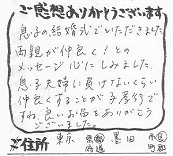 ご感想ありがとうございます
息子の結婚式でいただきました
両親が仲良く！との
メッセージ心にしみました。
息子夫婦に負けないくらい
仲良くすることが子孝行で
すね。良いお酒をありがとう
ございました。
ご住所 東京 都道府県 墨田 市区町郡